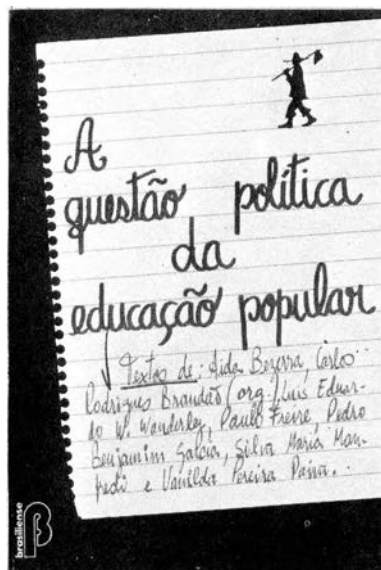 A
questão política
da
educação popular
Textos de: Aida Bezerra, Carlos
Rodrigues Brandão (org.), Luis Eduar-
do W. Wanderley, Paulo Freire, Pedro
Benjamim Garcia, Silvia Maria Man-
fredi e Vanilda Pereira Paiva.
brasiliense